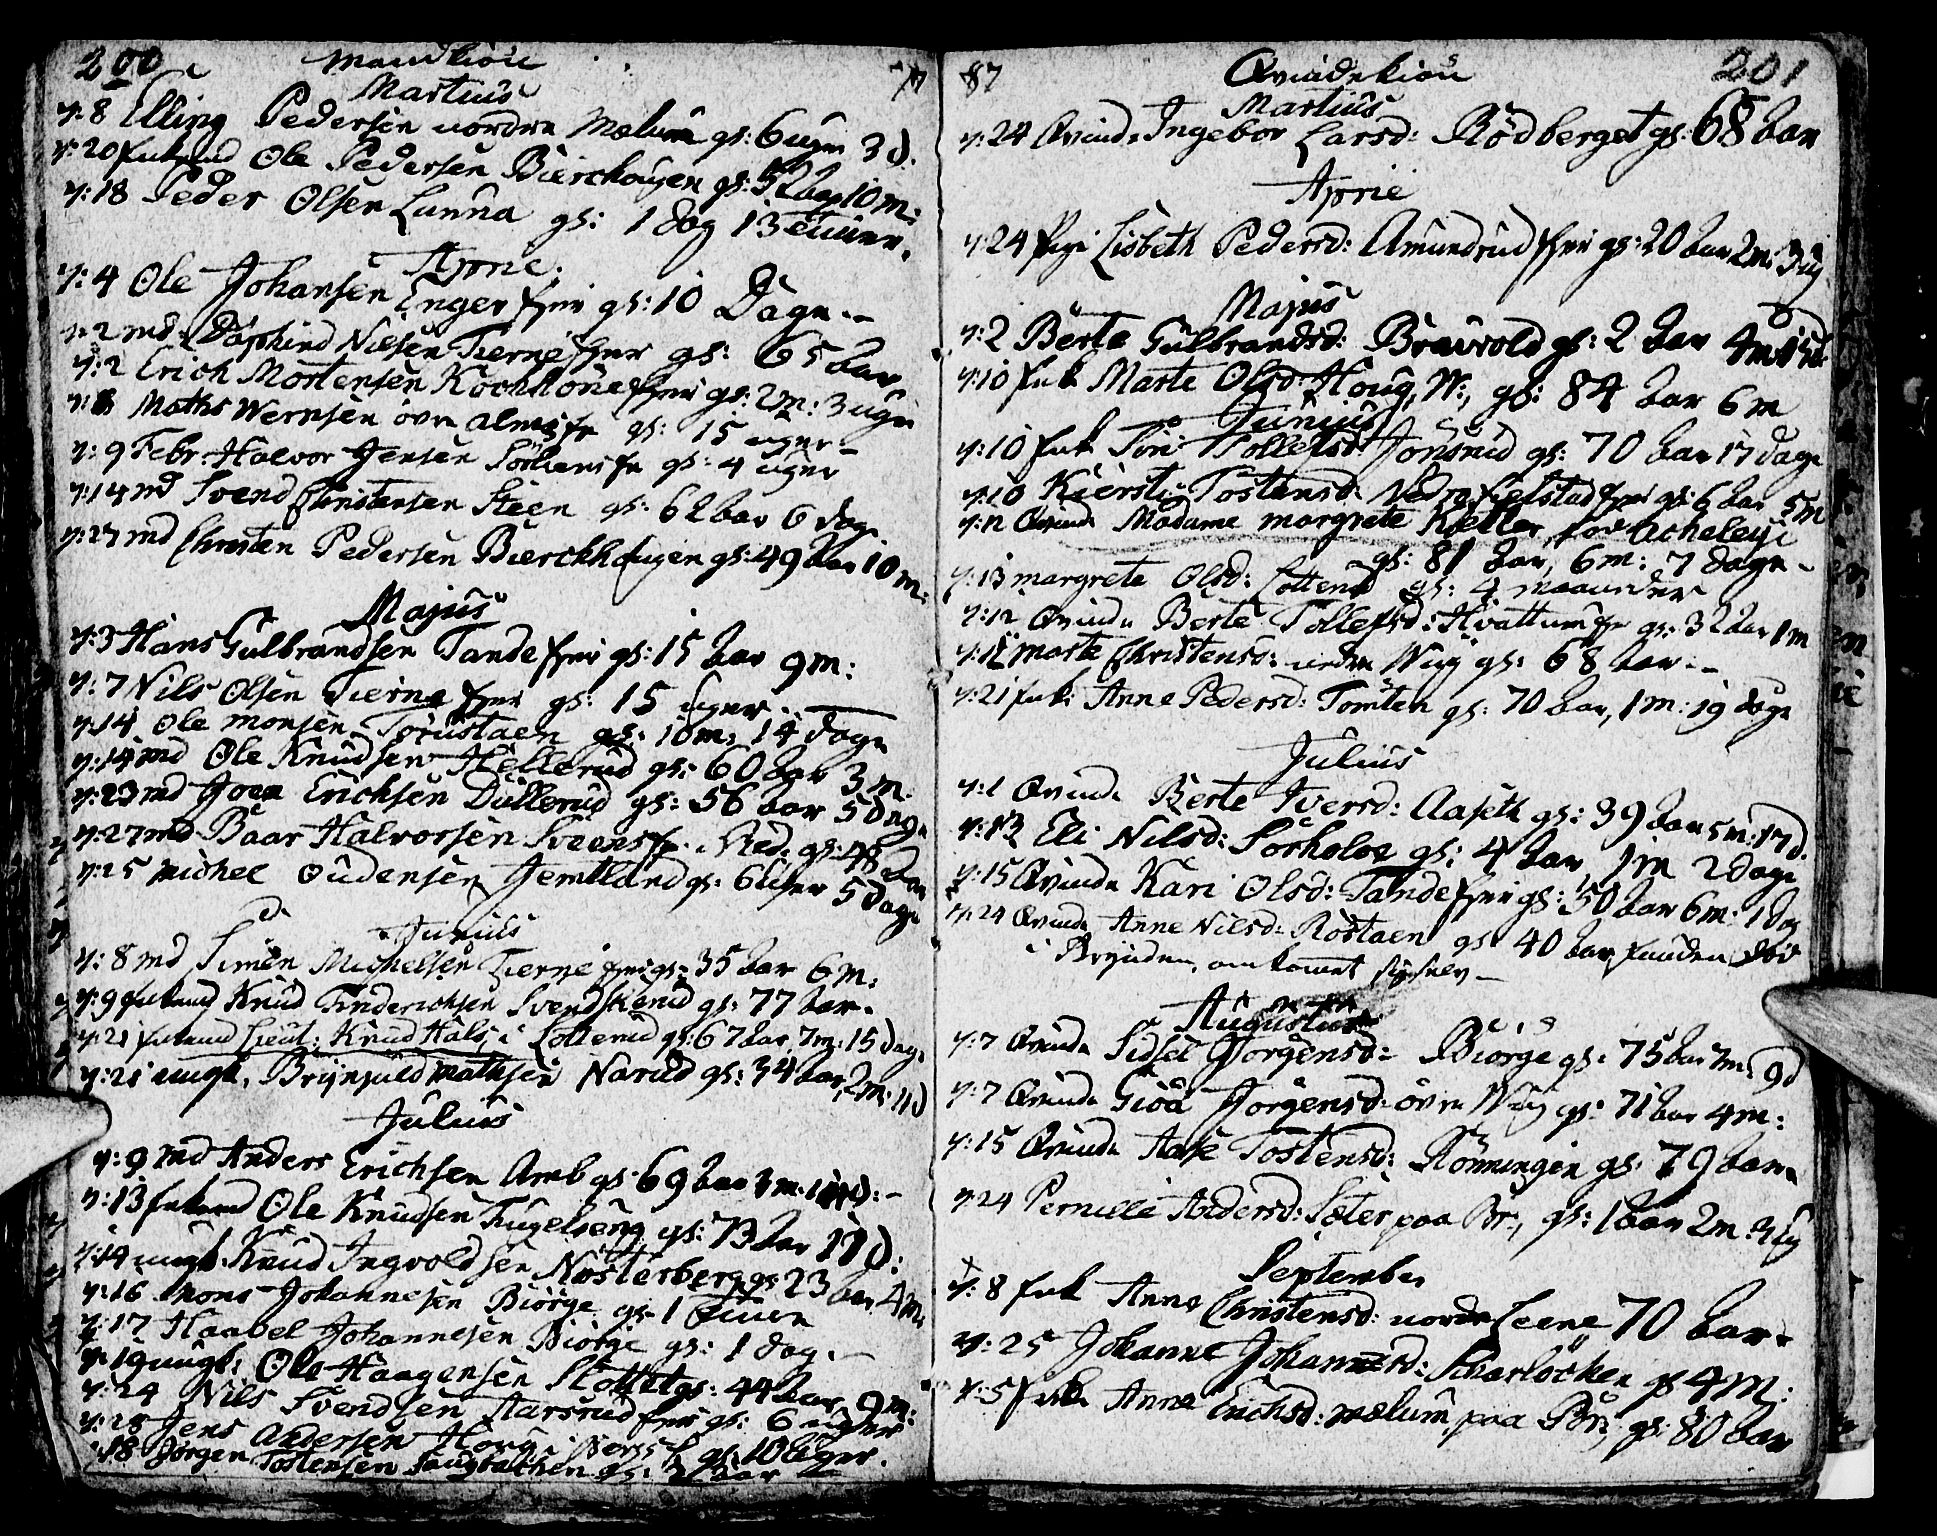 200 Mandkiön 17
Martius
d: 8 Elling Pedersen nordre Mælum gs: 6 uger 3 d.
d: 20 Enkemd Ole Pedersen Bierckougen gs: 52 aar 10 m:
d: 18 Peder Olsen Lunna gs: 1 dag 13 Timer.
April
d: 4 Ole Johansen Enger eje gs: 10 Dage.
d: 2 md: Daphind Nielsen Tierne eje gs: 65 aar
d: 2 Erich Mortensen Kochhone eje gs: 2 m: 3 uger
d: 8 Mathis Wernsen övre Alm gs: 15 uger
d: 9 Febr: Halvor Jensen gs: 4 uger
d: 14 md Svend Christensen Steen gs: 62 aar 6 dage
d: 27 md Christen Pedersen Bierckhougen gs: 49 aar 10 m:
Majus
d: 3 Hans Gulbrandsen Tande eje gs: 15 aar 9 m:
d: 7 Nils Olsen Tierne eje gs: 15 uger
d: 14 Ole Monsen Torustaen gs: 10 m: 14 dage
d: 14 md Ole Knudsen Hellerud gs: 60 aar 3 m:
d: 23 md Joen Erichsen Dullerud gs: 56 aar 5 dage
d: 27 md Baar Halvorsen gs: 48 aar
d: 25 Michel Oudensen Jemtland gs: 6 uger 5 dage
Junius
d: 8 md Simen Michelsen Tierne eje gs: 35 aar 6 m:
d: 9 Enkemd Knud Svendskerud gs: 77 aar.
d: 21 Enkemd Lieut: Knud Hals i Lotterud gs: 67 aar, 7 m: 15 dage
d: 21 ungk. Brynjuld Mathsen Narud gs: 34 aar, 2 m: 11 d
Julius
d: 9 md Anders Erichsen Amb gs: 69 aar
d: 13 Enkemd Ole Knudsen Fugelseng gs: 73 aar 17 d:
d: 14 ungk. Knud Ingvoldsen Nosterberg gs: 23 aar 4 m:
d: 16 Mons Johannesen Biörge gs: 1 Time
d: 17 Haabel Johannesen Biörge gs: 1 dag.
d: 19 ungk: Ole Haagensen Slottet gs: 44 aar 9 m:
d: 24 Nils Svendsen Aarsrud eje gs: 6 uger
d: 28 Jens Andersen Houg gs: 10 uger.
d: 18 Jörgen Tostensen gs: aar
87 Qvindekiön 201
Martius
d: 24 Qvinde Ingebor Larsd: Rödberget gs: 68 aar
April
d: 24 Pige Lisbeth Pedersd: Amundrud eje gs: 20 aar 2 m: 3 ug
Majus
d: 2 Berte Gulbrandsd: Braavold gs: 2 aar 4 m:
d: 10 Enke Marte Olsd: Houg, N:, gs: 84 aar 6 m
Junius
d: 10 Enk Siri Tollefsd: Jonsrud gs: 70 aar 17 dage
d: 10 Kiersti Tostensd: Nedre Fielstad eje gs: 6 aar 5 m
d: 12 Qvinde Madame Margrete Keller, fød Acheleye
gs: 81 aar, 6 m: 7 dage
d: 13 Margrete Olsd: Lotterud gs: 4 maaneder
d: 12 Qvinde Berte Tollefsd: Hvattum gs: 32 aar 1 m
d: 12 Marte Christensd: nedre Wiig gs: 68 aar.
d: 21 Enke Anne Pedersd: Tomten gs: 70 aar, 1 m: 19 dage
Julius
d: 1 Qvinde Berte Iversd: Aaseth gs: 39 aar 5 m: 17 d.
d: 13 Eli Nilsd: Sörholve gs: 4 aar, 1 m 2 dage
d: 15 Qvinde Kari Olsd: Tande eje gs: 50 aar 6 m: 1 dag
d: 24 Qvinde Anne Nilsd: Rostaen gs: 40 aar funden död
i Brynden, omkomet
Augustus
d: 7 Qvinde Sidsel Jörgensd: Biörge gs: 75 aar 7 m: 9 d
d: 7 Qvinde Giöa Jörgensd: övre Wiig gs: 71 aar 4 m:
d: 15 Qvinde Aase Tostensd: Rönningen gs: 79 aar
d: 24 Pernille Andersd: Sæter paa Br:, gs: 1 aar 2 m: 3 ug
September
d: 8 Enk Anne Christensd: nordre Leene 70 aar
d: 25 Johanne Johannesd: Skarlöcken gs 4 M:
d: 5 Enke Anne Erichsd: Mælum paa Br:, gs: 80 aar